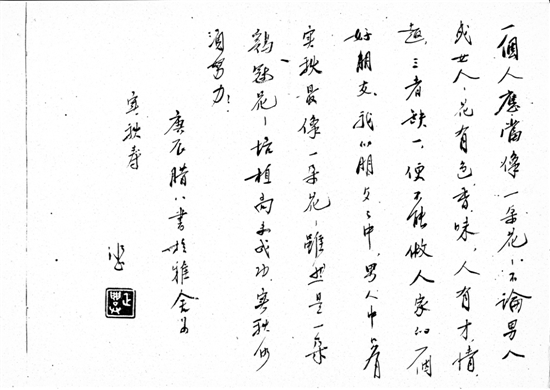 一個人應當像一朵花，不論男人
或女人，花有色香味，人有才、情、
趣，三者缺一，便不能做人家的一個
好朋友。我的朋友之中，男人中只有
實秋最像一朵花，雖然是一朵
鷄冠花，培植尚未成功，實秋仍
須努力！
庚辰腊八書於雅舍為
實秋壽